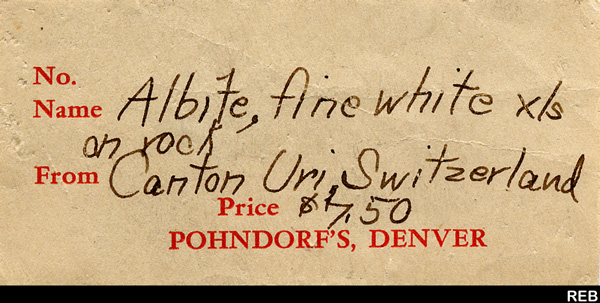 No.
Name Albite, fine white xls
on rock
From Canton Uri, Switzerland
Price $7.50
POHNDORF'S, DENVER
REB